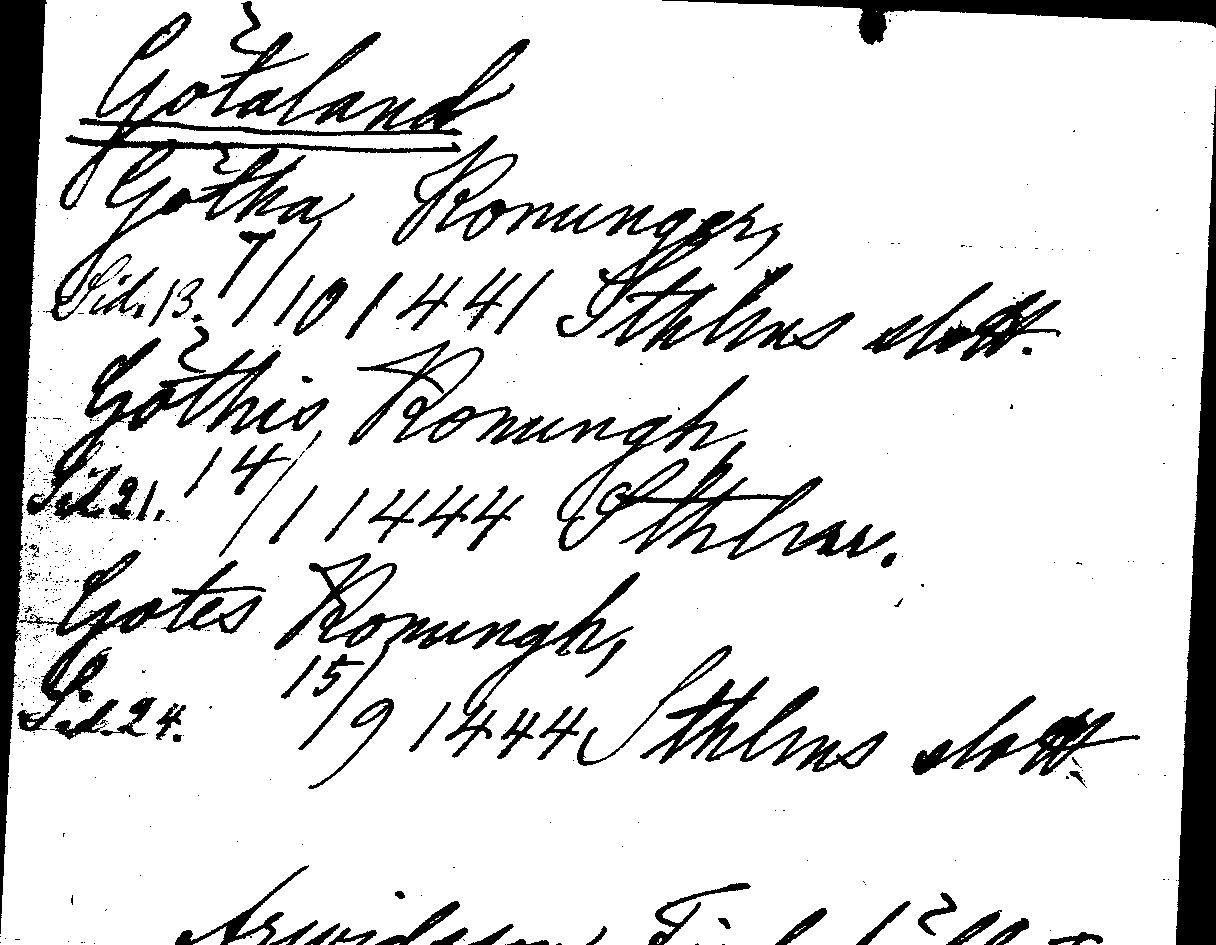 Götaland
Götha Konunger,
Sid. 13. 7/10 1441 Sthlms slott.
Göthis Konungh,
Sid. 21. 14/1 1444 Sthlm.
Gotes Konungh,
Sid. 24. 15/9 1444 Sthlms slott
Arwidsson,